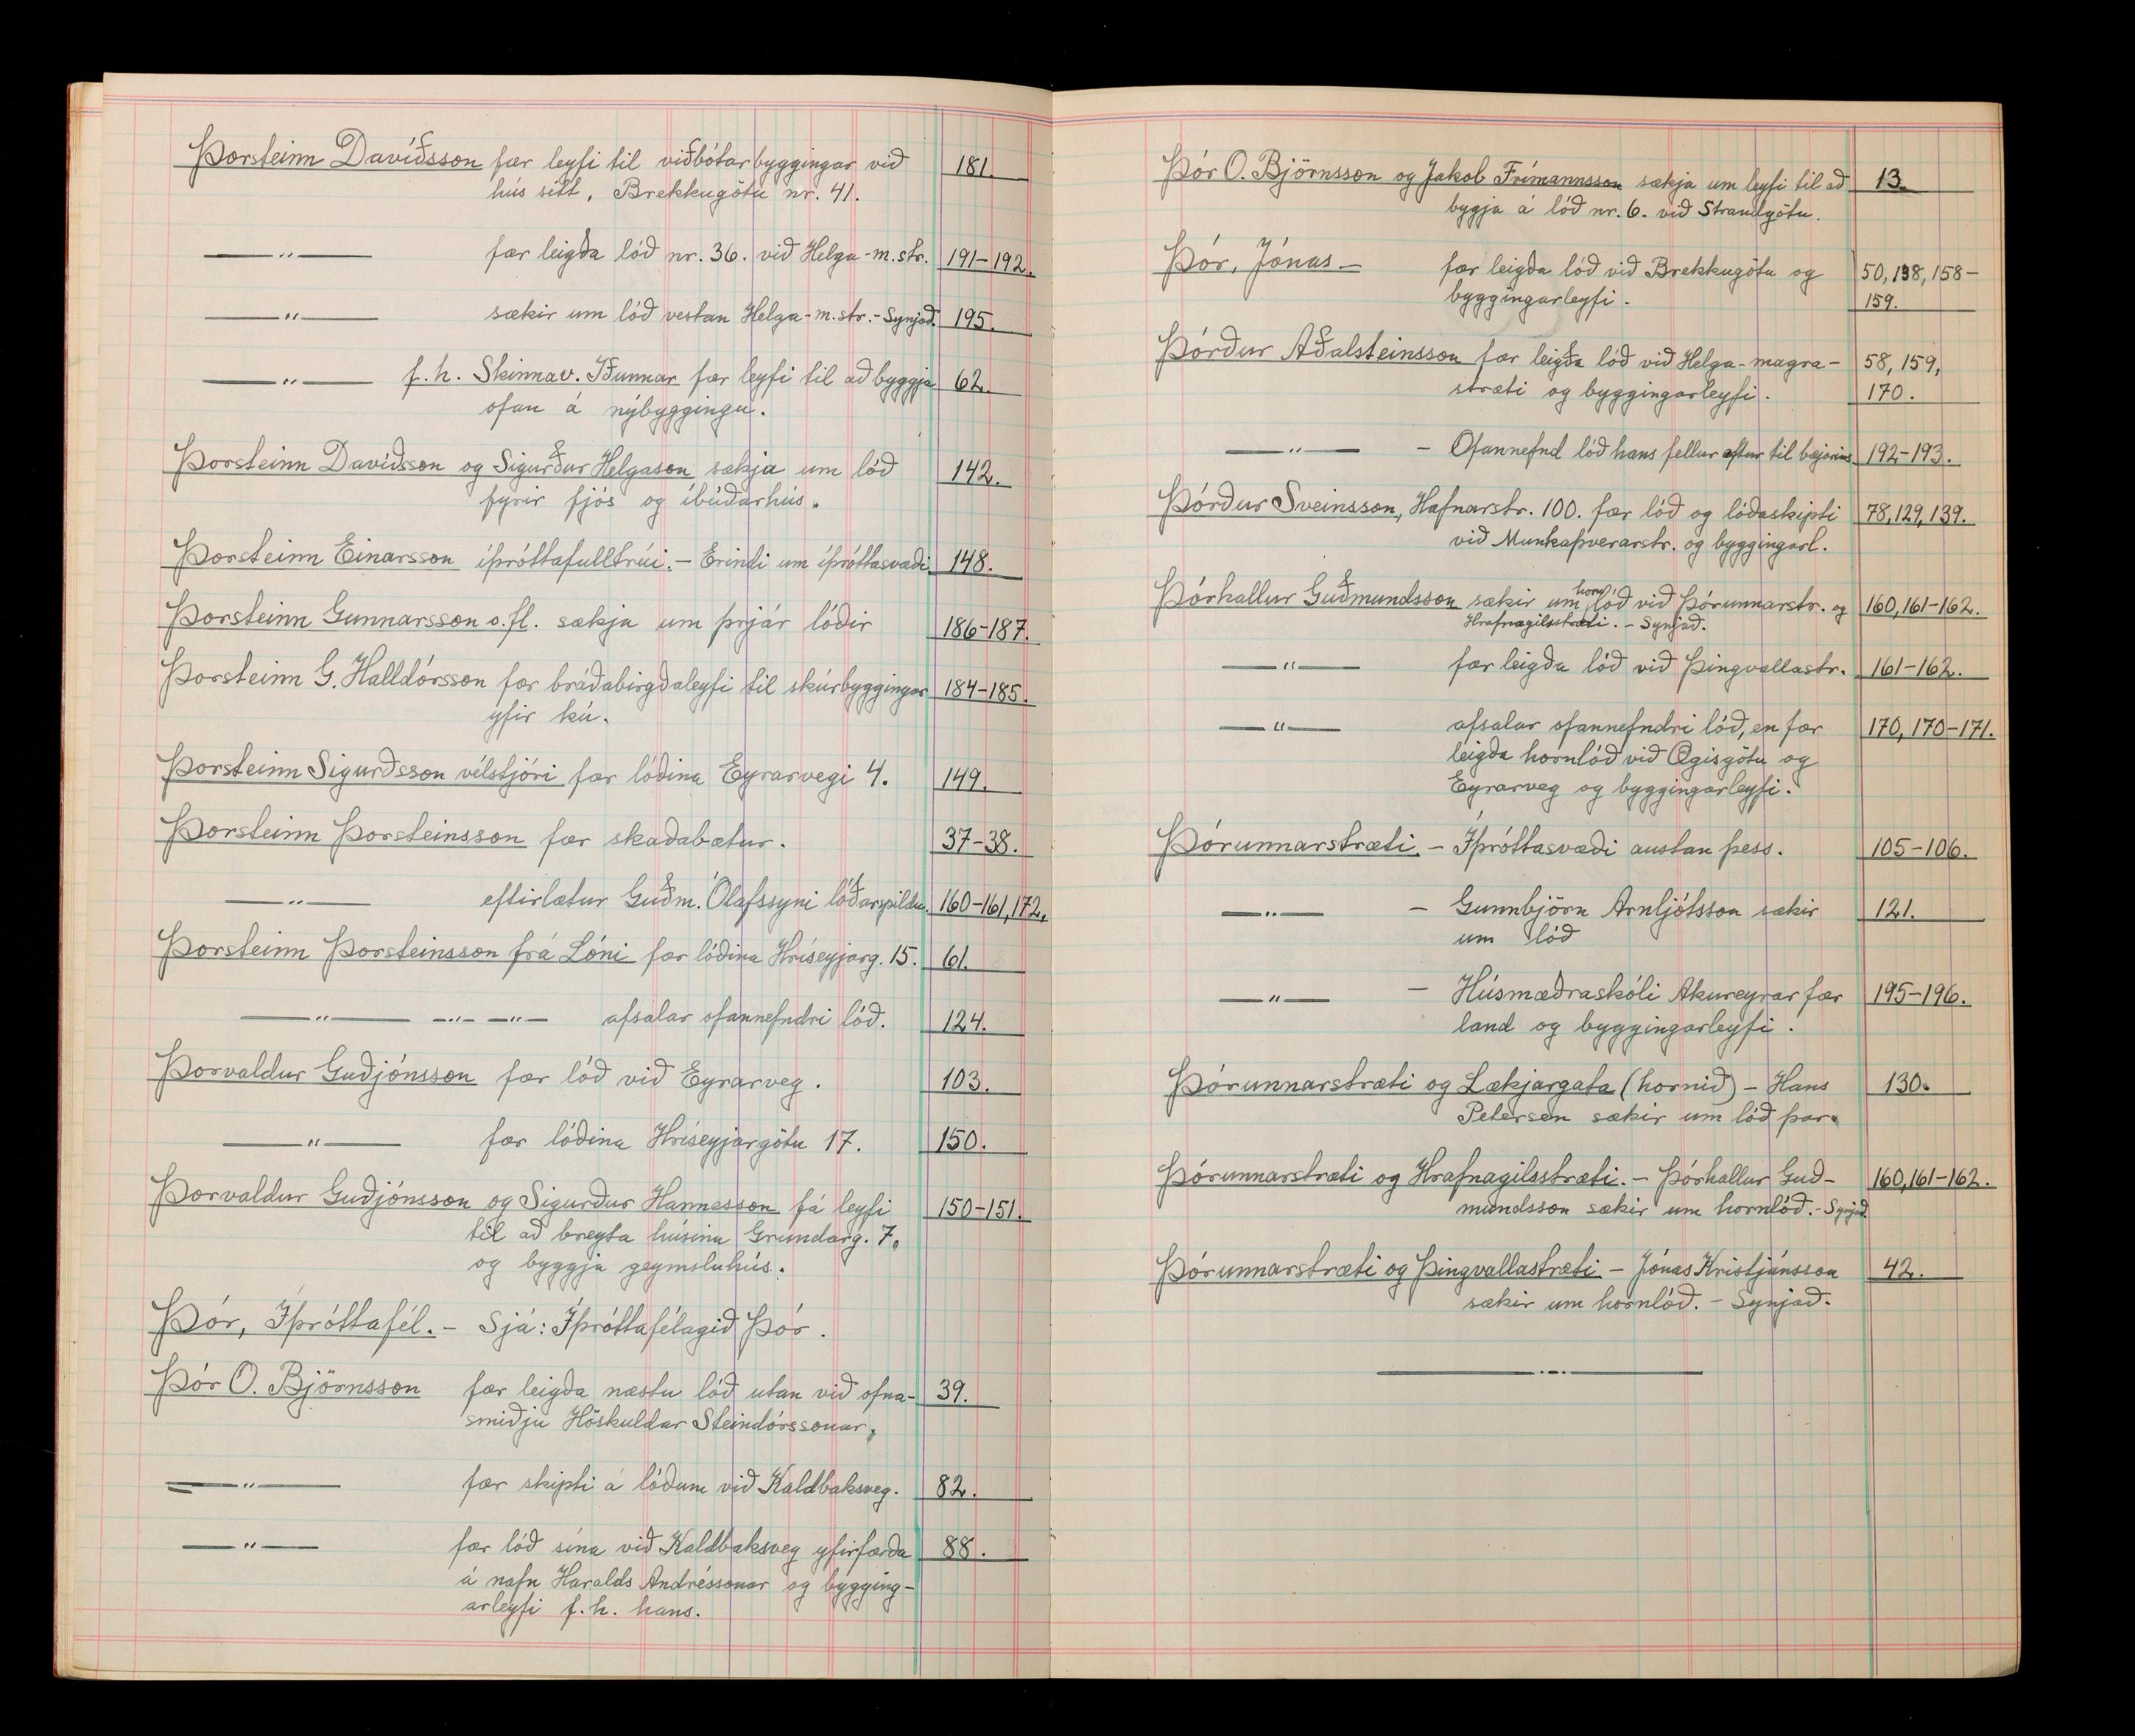 Þorsteinn Davíðsson fær leyfi til viðbótarbyggingar við 181.
hús sitt, Brekkugötu nr. 41.
—〃— fær leigða lóð nr. 36. við Helga-m.str. 191-192.
—〃— sækir um lóð vestan Helga-m.str.- Synjað. 195.
—〃— f.h. Skinnav. Iðunnar fær leyfi til að byggja 62.
ofan á nýbyggingu.
Þorsteinn Davíðsson og Sigurður Helgason sækja um lóð 142.
fyrir fjós og íbúðarhús.
Þorsteinn Einarsson íþróttafulltrúi.- Erindi um íþróttasvæði. 148.
Þorsteinn Gunnarsson o.fl. sækja um þrjár lóðir 186-187.
Þorsteinn G. Halldórsson fær bráðabirgðaleyfi til skúrbyggingar 184-185.
yfir kú.
Þorsteinn Sigurðsson vélstjóri fær lóðina Eyrarvegi 4. 149.
Þorsteinn Þorsteinsson fær skaðabætur. 37-38.
—〃— eftirlætur Guðm. Ólafssyni lóðarspildu. 160-161, 172.
Þorsteinn Þorsteinsson frá Lóni fær lóðina Hríseyjarg. 15. 61.
—〃— —〃— —〃— afsalar ofannefndri lóð. 124.
Þorvaldur Guðjónsson fær lóð við Eyrarveg. 103.
—〃— fær lóðina Hríseyjargötu 17. 150.
Þorvaldur Guðjónsson og Sigurður Hannesson fá leyfi 150-151.
til að breyta húsinu Grundarg. 7.
og byggja geymsluhús.
Þór, Íþróttafél. - Sjá: Íþróttafélagið Þór.
Þór O. Björnsson fær leigða næstu lóð utan við ofna- 39.
smiðju Höskuldar Steindórssonar.
—〃— fær skipti á lóðum við Kaldbaksveg. 82.
—〃— fær lóð sína við Kaldbaksveg yfirfærða 88.
á nafn Haralds Andréssonar og bygging-
arleyfi f.h. hans.
Þór O. Björnsson og Jakob Frímannsson sækja um leyfi til að 13.
byggja á lóð nr. 6. við Strandgötu.
Þór, Jónas - fær leigða lóð við Brekkugötu og 50, 138, 158-
byggingarleyfi. 159.
Þórður Aðalsteinsson fær leigða lóð við Helga-magra- 58, 159,
stræti og byggingarleyfi. 170.
—〃— - Ofannefnd lóð hans fellur aftur til bæjarins 192-193.
Þórður Sveinsson, Hafnarstr. 100. fær lóð og lóðaskipti 78, 129, 139.
við Munkaþverarstr. og byggingarl.
Þórhallur Guðmundsson sækir um hornlóð við Þórunnarstr. og 160, 161-162.
Hrafnagilsstræti. - Synjað.
—〃— fær leigða lóð við Þingvallastr. 161-162.
—〃— afsalar ofannefndri lóð, en fær 170, 170-171.
leigða hornlóð við Ægisgötu og
Eyrarveg og byggingarleyfi.
Þórunnarstræti. - Íþróttasvæði austan þess. 105-106.
—〃— - Gunnbjörn Arnljótsson sækir 121.
um lóð
—〃— - Húsmæðraskóli Akureyrar fær 195-196.
land og byggingarleyfi.
Þórunnarstræti og Lækjargata (hornið) - Hans 130.
Petersen sækir um lóð þar.
Þórunnarstræti og Hrafnagilsstræti. - Þórhallur Guð- 160, 161-162.
mundsson sækir um hornlóð. - Synjað.
Þórunnarstræti og Þingvallastræti - Jónas Kristjánsson 42.
sækir um hornlóð. - Synjað.